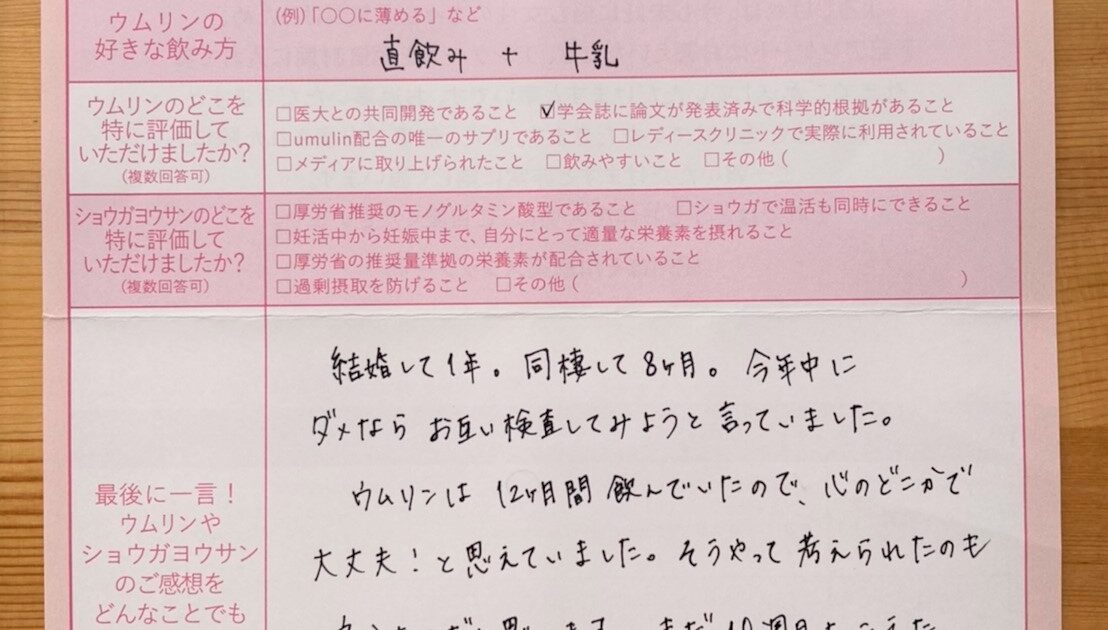 ウムリンの
好きな飲み方
(例)「○○に薄める」など
直飲み + 牛乳
ウムリンのどこを
特に評価して
いただけましたか?
(複数回答可)
□医大との共同開発であること ☑学会誌に論文が発表済みで科学的根拠があること
□umulin配合の唯一のサプリであること □レディースクリニックで実際に利用されていること
□メディアに取り上げられたこと □飲みやすいこと □その他( )
ショウガヨウサンのどこを
特に評価して
いただけましたか?
(複数回答可)
□厚労省推奨のモノグルタミン酸型であること □ショウガで温活も同時にできること
□妊活中から妊娠中まで、自分にとって適量な栄養素を摂れること
□厚労省の推奨量準拠の栄養素が配合されていること
□過剰摂取を防げること □その他( )
最後に一言!
ウムリンや
ショウガヨウサン
のご感想を
どんなことでも
結婚して1年。同棲して8ヶ月。今年中に
ダメなら お互い検査してみようと言っていました。
ウムリンは 12ヶ月間 飲んでいたので、心のどこかで
大丈夫!と思えていました。そうやって考えられたのも